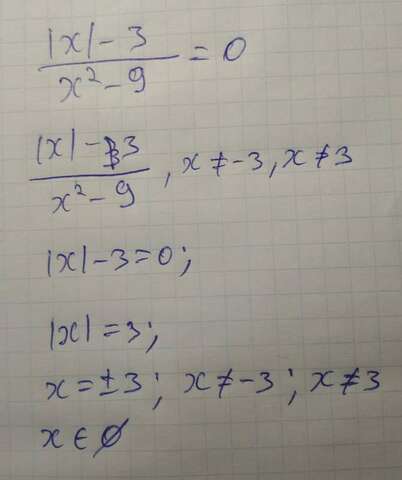 (|x| - 3)/(x² - 9) = 0
(|x| - 3)/(x² - 9), x ≠ -3, x ≠ 3
|x| - 3 = 0;
|x| = 3;
x = ±3; x ≠ -3; x ≠ 3
x ∈ ∅